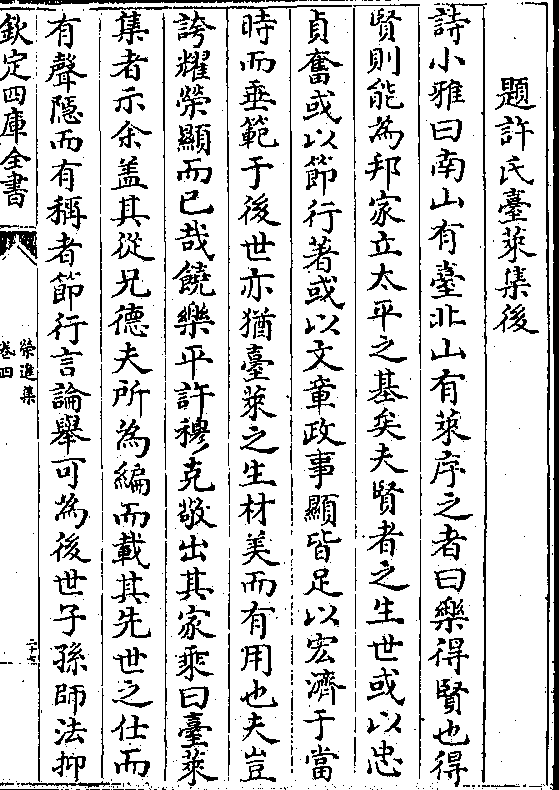 題許氏臺萊集後
詩小雅曰南山有臺北山有萊序之者曰樂得賢也得
賢則能為邦家立太平之基矣夫賢者之生世或以忠
貞奮或以節行著或以文章政事顯皆足以宏濟于當
時而垂範于後世亦猶臺萊之生材美而有用也夫豈
誇耀榮顯而已哉饒樂平許穆克敬出其家乘曰臺萊
集者示余盖其從兄德夫所為編而載其先世之仕而
有聲隠而有稱者節行言論舉可為後世子孫師法抑
欽定四庫全書
榮進集
卷四